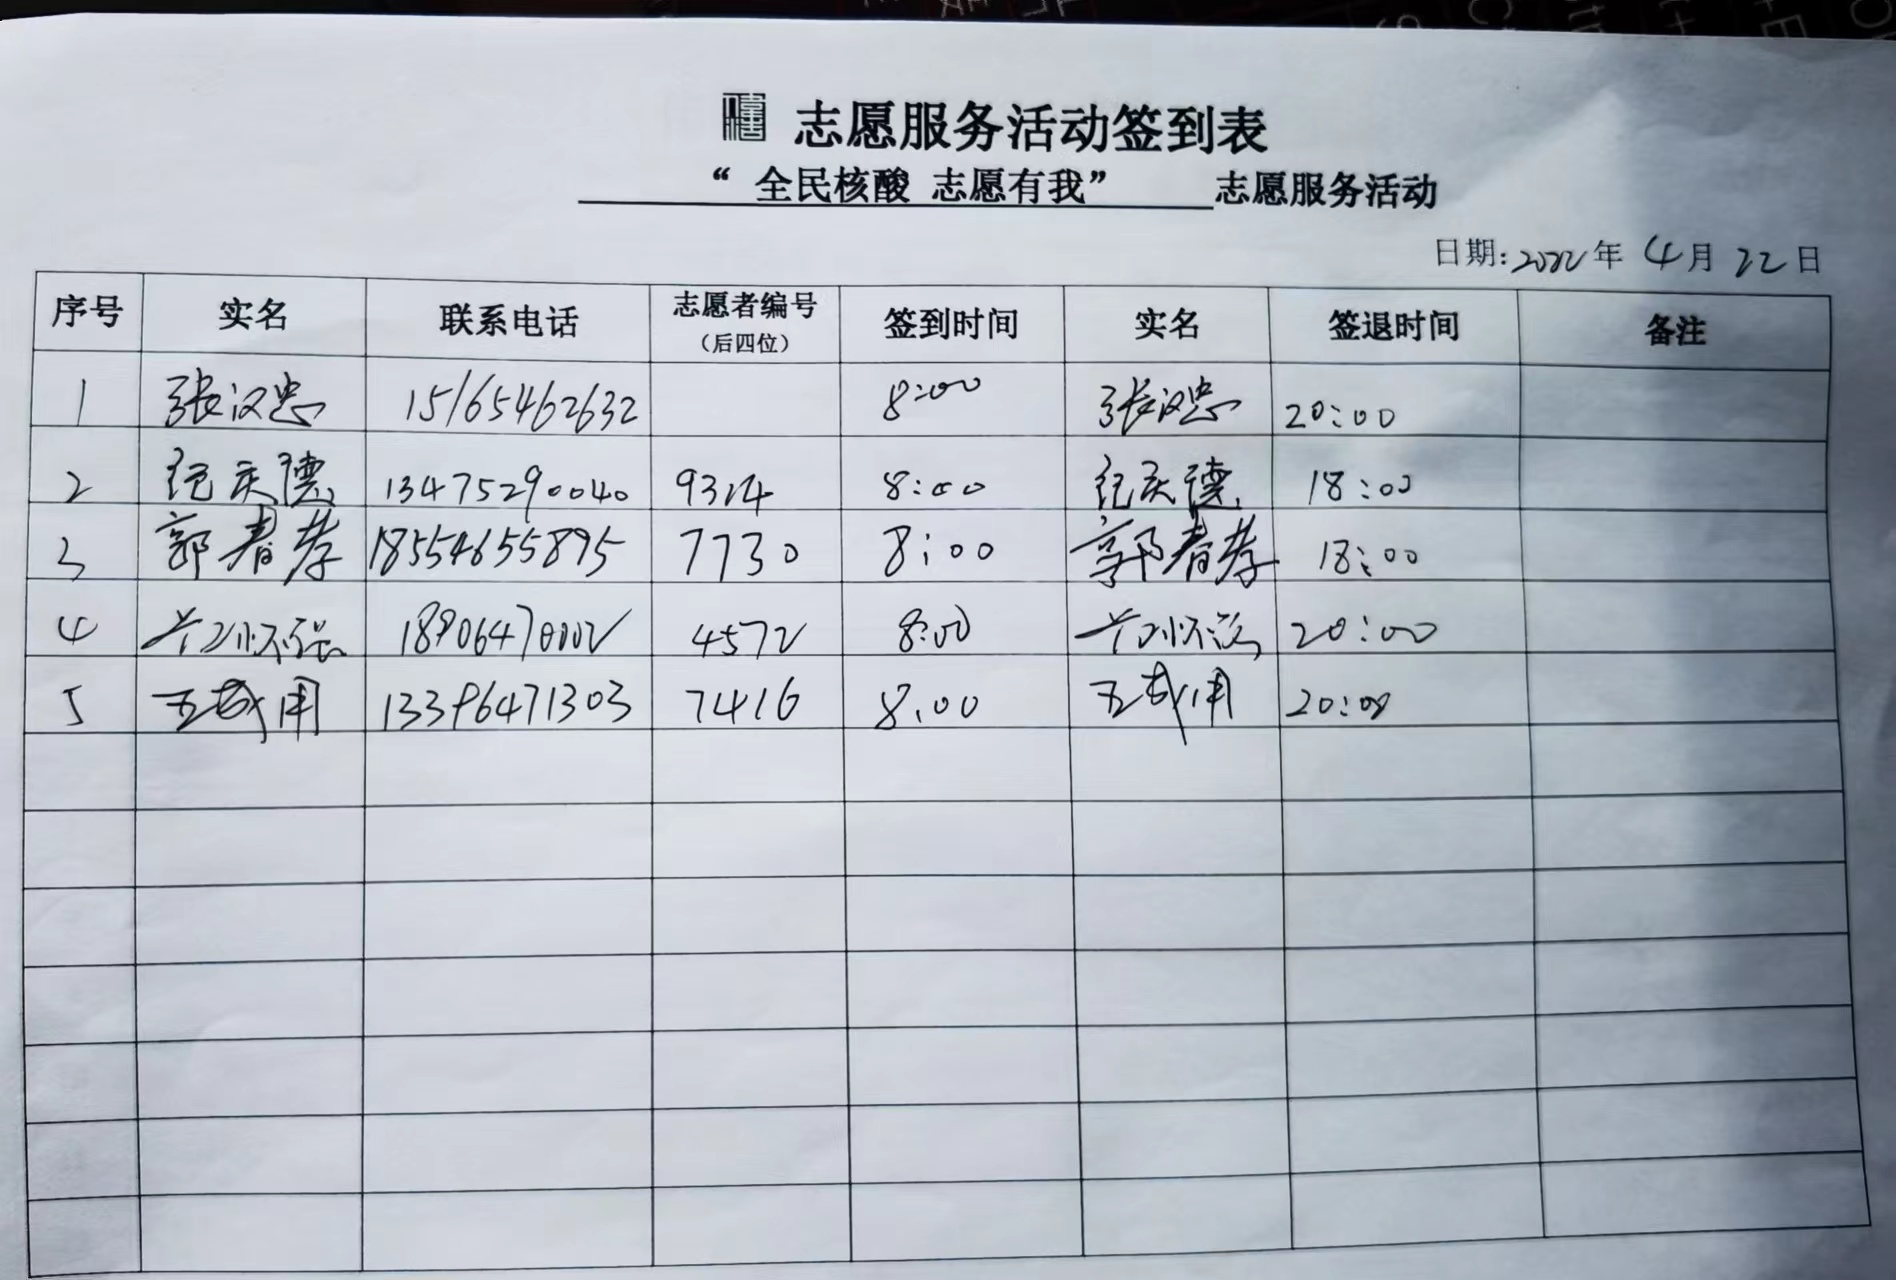 志愿服务活动签到表
“ 全民核酸 志愿有我” 志愿服务活动
日期: 2022年 4月 22日
序号 实名 联系电话 志愿者编号（后四位） 签到时间 实名 签退时间 备注
1 张汉忠 15165462632 8:00 张汉忠 20:00
2 纪庆德 13475290040 9314 8:00 纪庆德 18:00
3 郭春孝 18554655895 7730 8:00 郭春孝 18:00
4 18906470002 4572 8:00 20:00
5 13396471303 7416 8:00 20:00